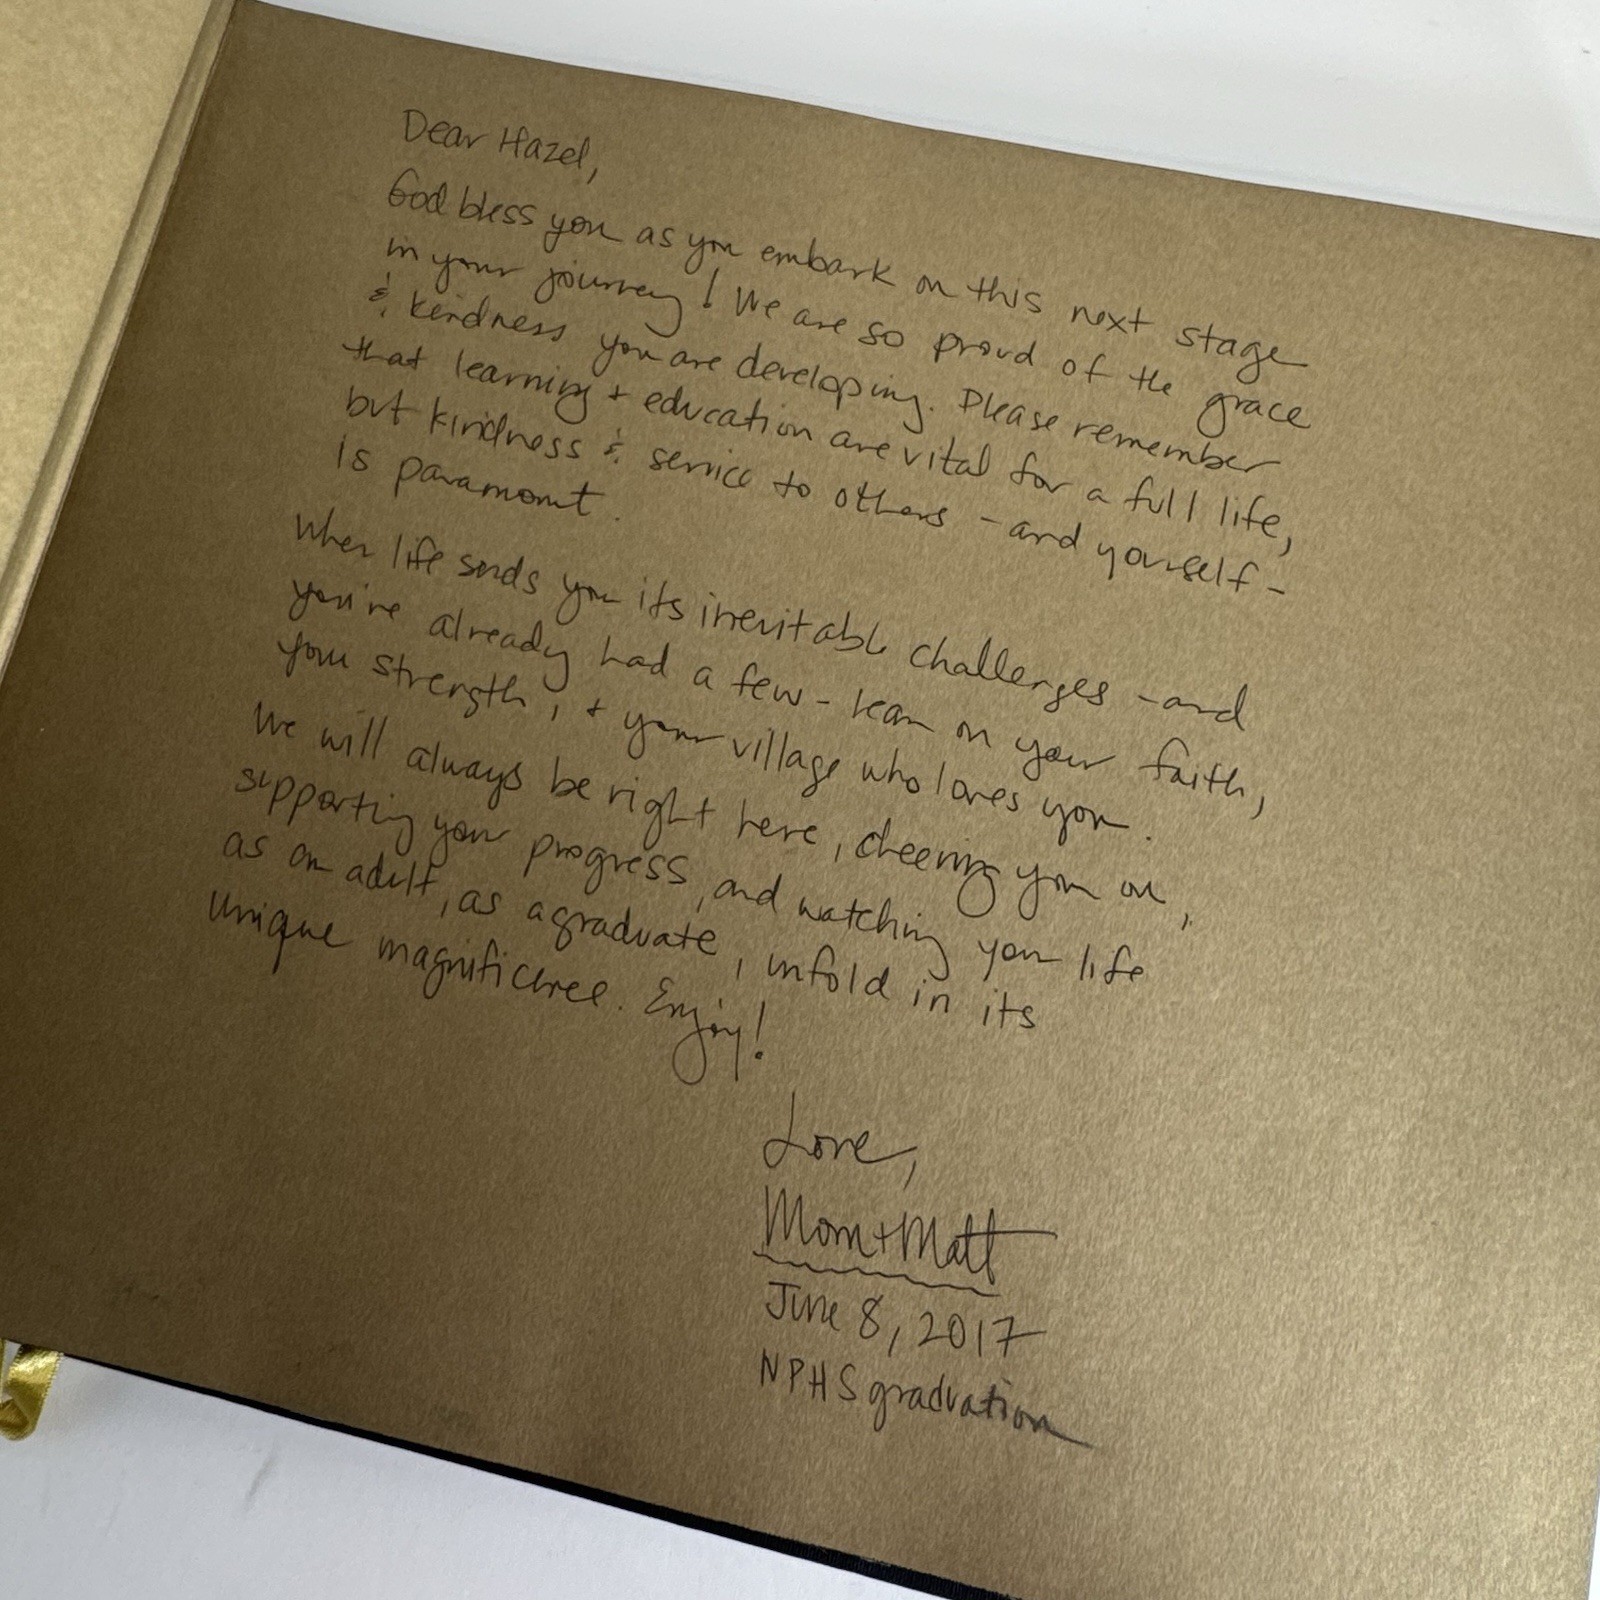 Dear Hazel,
God bless you as you embark on this next stage
in your journey! We are so proud of the grace
& kindness you are developing. Please remember
that learning + education are vital for a full life,
but kindness & service to others - and yourself -
is paramount.
When life sends you its inevitable challenges - and
you've already had a few - lean on your faith,
your strength, + your village who loves you.
We will always be right here, cheering you on,
supporting your progress, and watching your life
as an adult, as a graduate, unfold in its
unique magnificence. Enjoy!
Love,
Mom+Matt
June 8, 2017
NPHS graduation